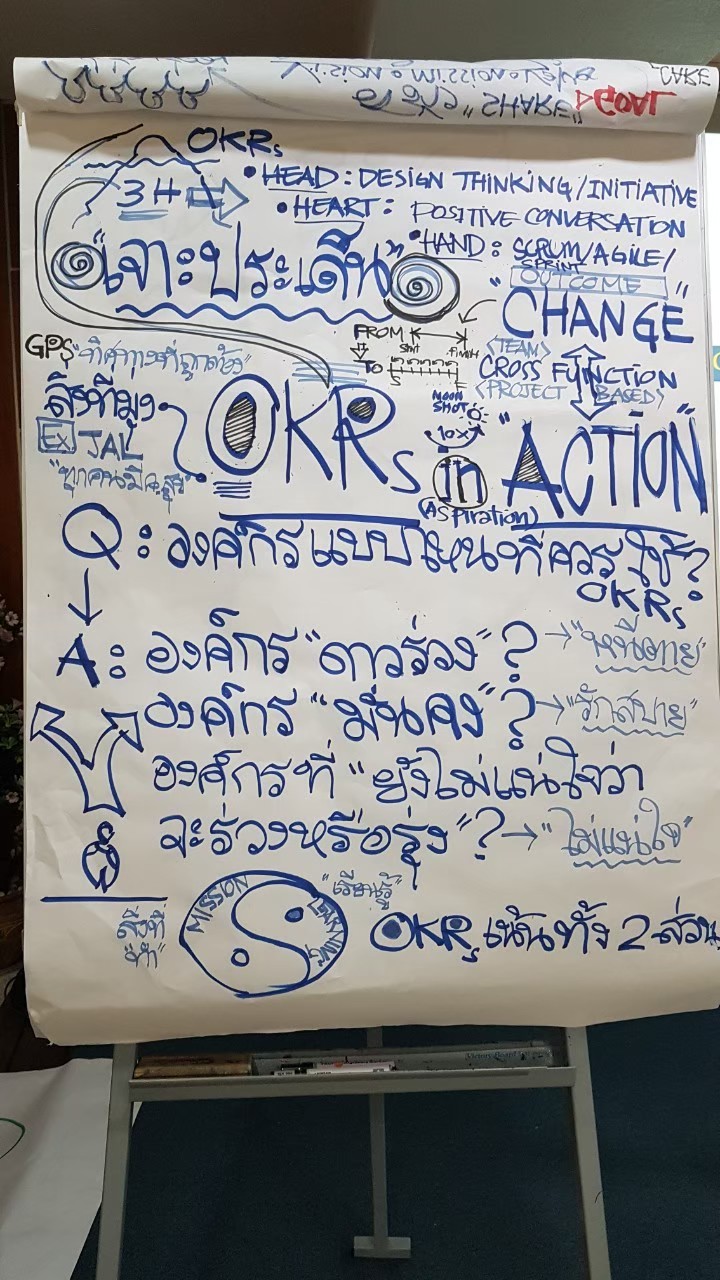 CARE
"SHARE" GOAL
OKRs
3H
• HEAD : DESIGN THINKING/INITIATIVE
• HEART : POSITIVE CONVERSATION
• HAND : SCRUM/AGILE/
SPRINT
OUTCOME
"เจาะประเด็น"
"CHANGE"
FROM
START
FINISH
TO
S
F
<TEAM>
CROSS FUNCTION
<PROJECT BASED>
GPS "ทิศทางที่ถูกต้อง"
สิ่งที่มุ่ง
Ex JAL
MOON
SHOT
10x
OKRs in "ACTION"
(Aspiration)
Q : องค์กรแบบไหนที่ควรใช้?
OKRs
A : องค์กร "ดาวร่วง" ? → "หนีตาย"
องค์กร "มั่นคง" ? → "รักสบาย"
องค์กรที่ "ยังไม่แน่ใจว่า
จะร่วงหรือรุ่ง" ? → "ไม่แน่ใจ"
สิ่งที่
"ทำ"
MISSION
LEARNING
"เรียนรู้"
OKRs เน้นทั้ง 2 ส่วน